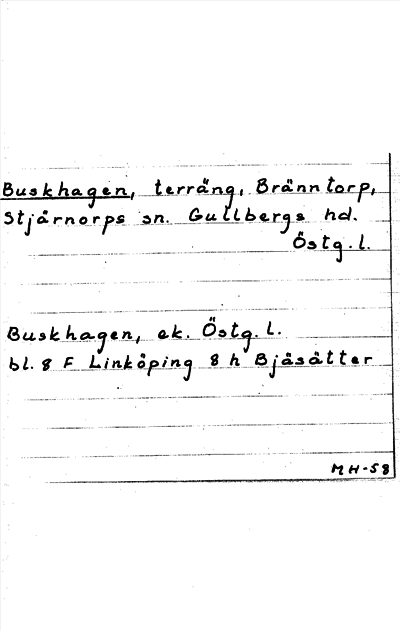 Buskhagen, terräng, Bränntorp,
Stjärnorps sn. Gullbergs hd.
Östg.l.
Buskhagen, ek. Östg.l.
bl. 8 F Linköping 8 h Bjäsätter
MH-58